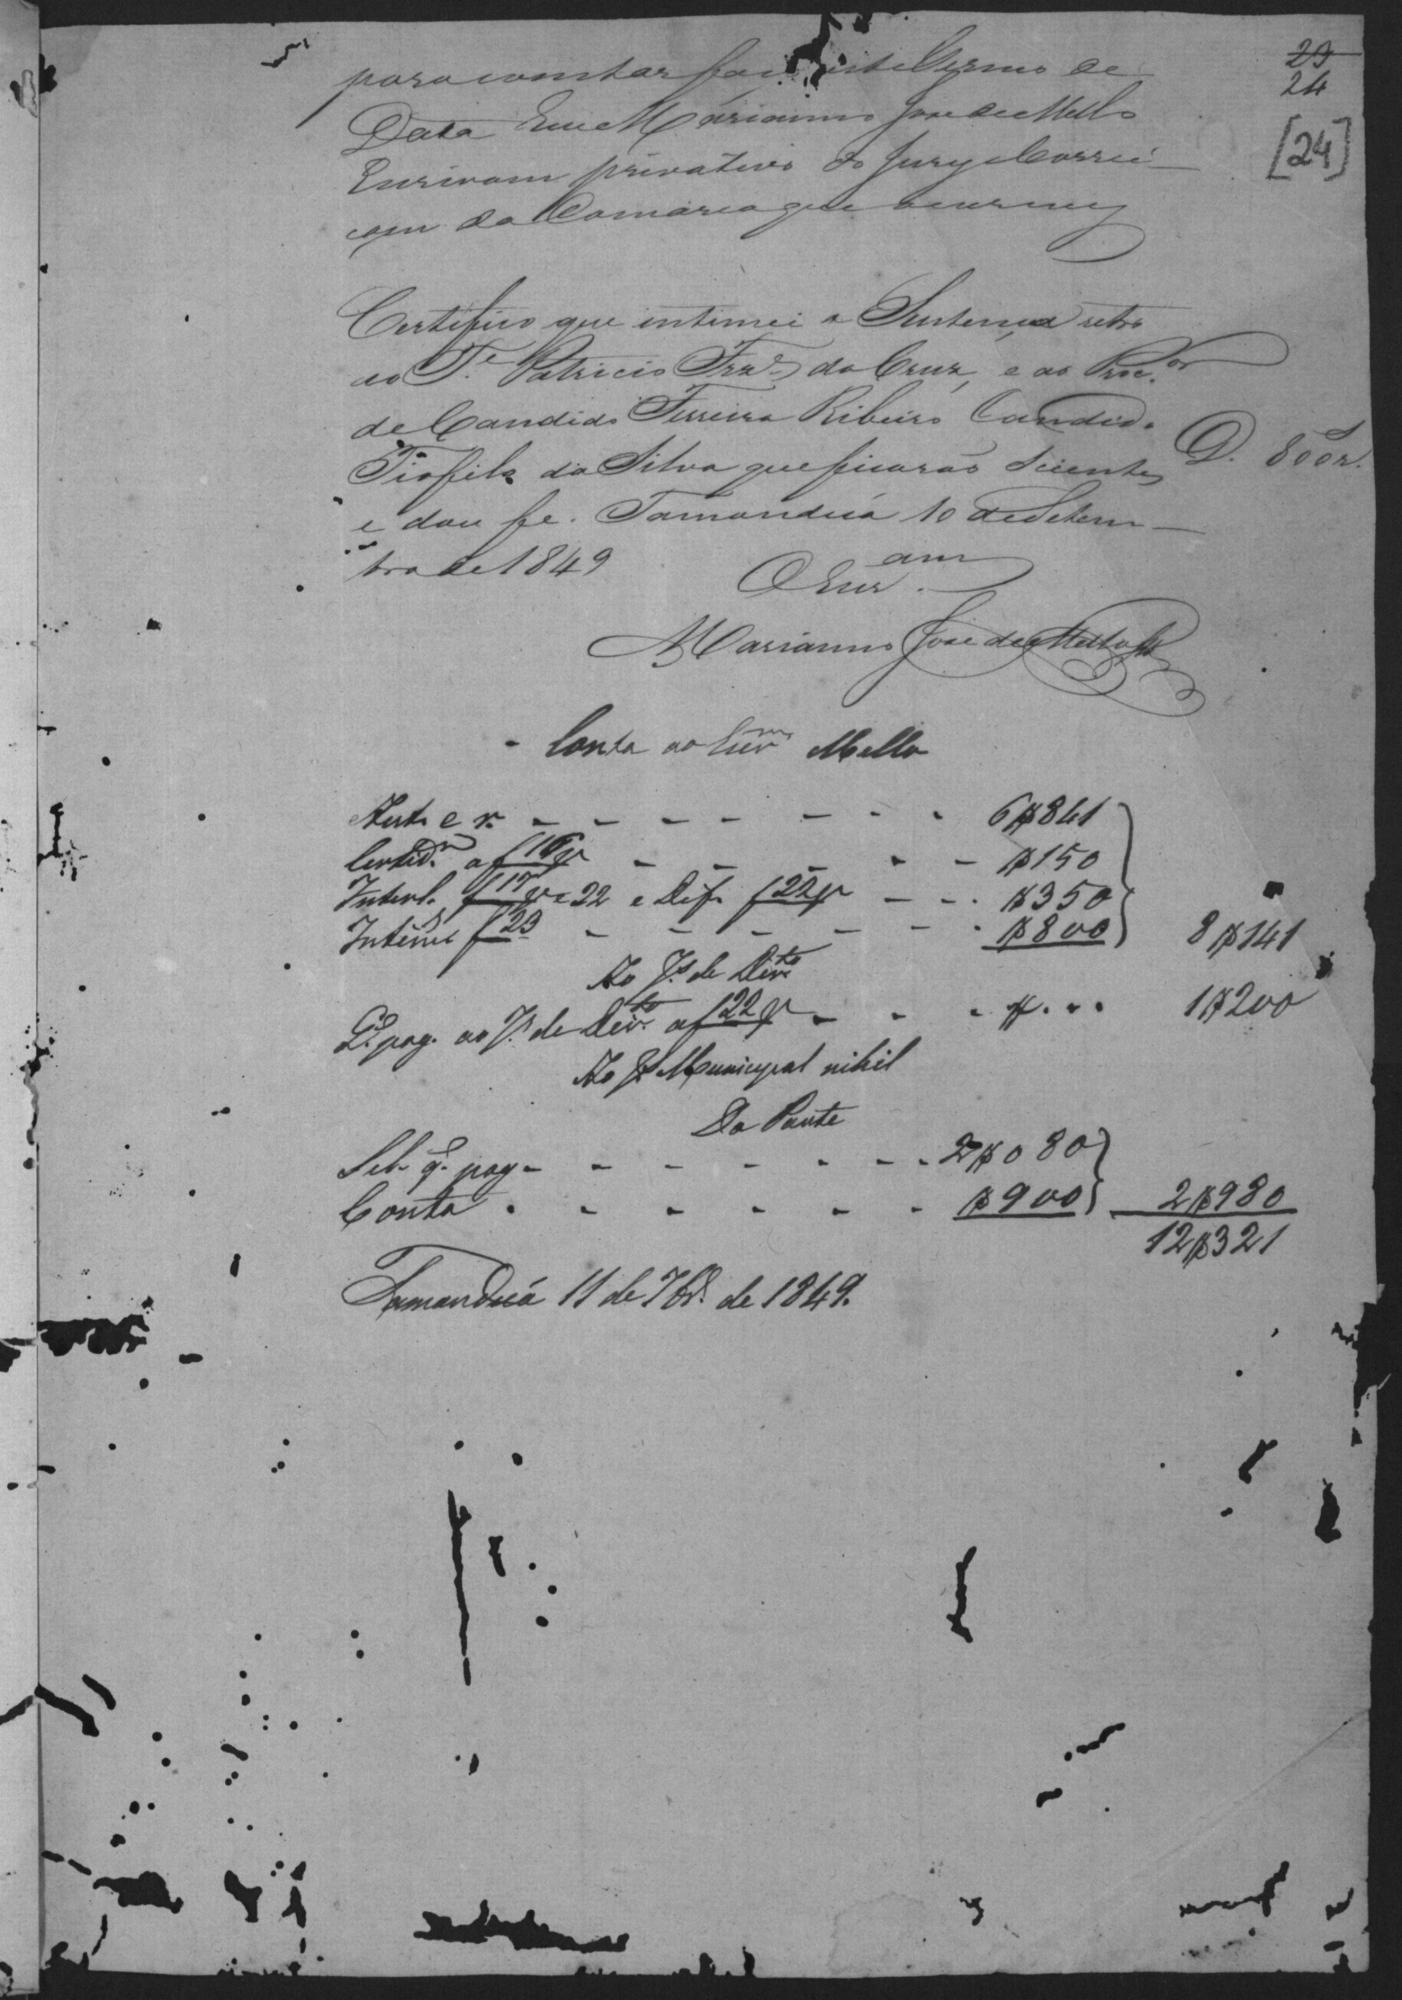 23
24
[24]
para constar faço este Termo de
Data Eu Marianno Jose de Mello
Escrivam privativo do Jury e Correi-
çam da Comarca que escrevy
Certifico que intimei a Sentença retro
ao Te. Patricio Frz. da Cruz, e ao Proc.or
de Candido Ferreira Ribeiro Candido
Tiofilo da Silva que ficarão scientes
D. 800 r.s
e dou fe. Tamanduá 10 de Setem-
bro de 1849
O Escr.am
Marianno Jose de Mello
Conta ao Escr.m Mello
Aut. e r. - - - - - - - 6$841
Certid.m a f 16 v - - - - - $150
Interl. f 17 v e 22 e Def. f 22 v - - - $350
Intim.es f 23 - - - - - - - $800 8$141
Ao J. de Dir.to
Q.e pag. ao J. de Dir.to a f 22 v - - - $ . . 1$200
Ao J. Municipal nihil
Da Parte
Sel. q. pag. - - - - - - - 2$080
Conta . - - - - - - $900 2$980
12$321
Tamanduá 11 de 7br.o de 1849.